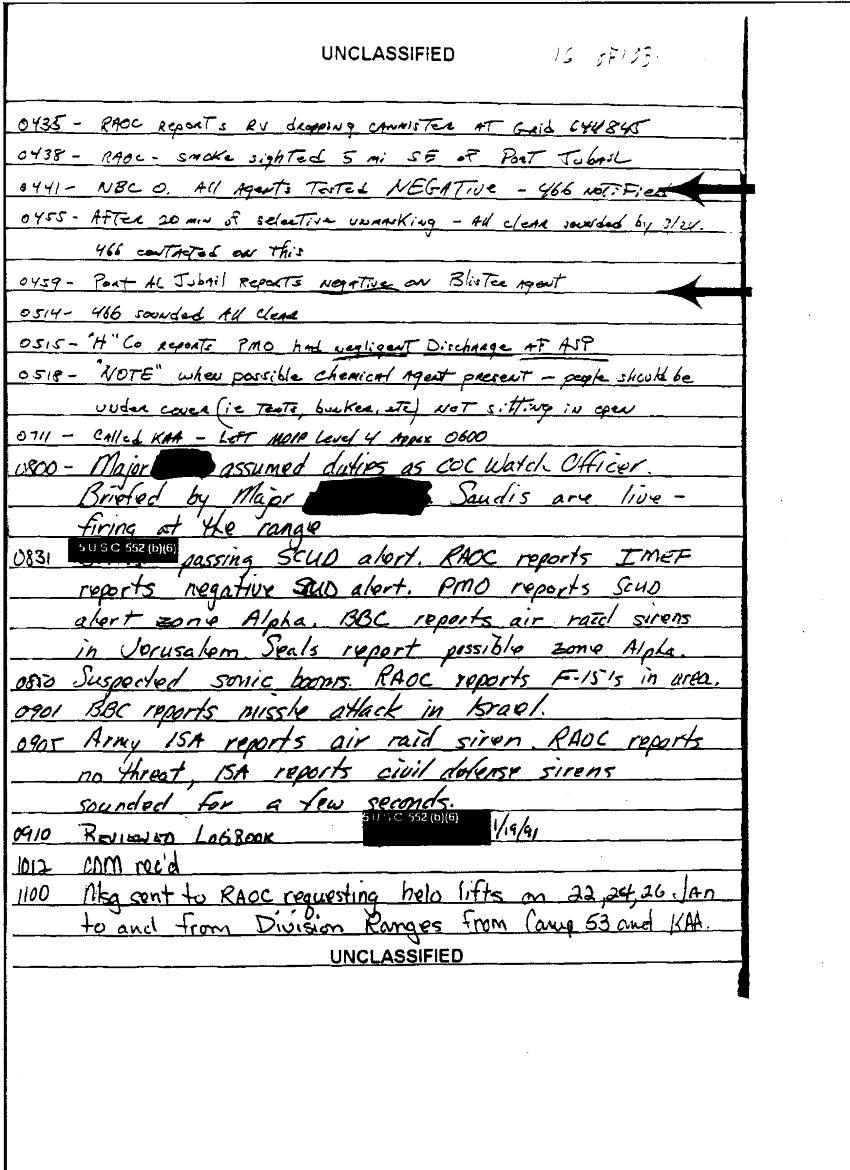 UNCLASSIFIED
16 OF 103
0435 - RAOC REPORTS RV dropping CANNISTER AT Grid 644845
0438 - RAOC - smoke sighted 5 mi SE of PORT JUBAIL
0441 - NBC O. All Agents Tested NEGATIVE - 466 NOTIFIED
0455 - AFTER 20 min of selective unmasking - All clear sounded by 3/24.
466 contacted on this
0459 - Port AL Jubail REPORTS Negative on Blister Agent
0514 - 466 sounded All Clear
0515 - "H" Co REPORTS PMO had negligent Discharge AT ASP
0518 - "NOTE" when possible chemical Agent present - people should be
under cover (ie Tents, bunker, etc) NOT sitting in open
0711 - Called KAA - LEFT MOPP Level 4 Appox 0600
0800 - Major assumed duties as COC Watch Officer.
Briefed by Major Saudis are live -
firing at the range
5 U S C 552 (b)(6)
0831 passing SCUD alert. RAOC reports IMEF
reports negative SCUD alert. PMO reports Scud
alert zone Alpha. BBC reports air raid sirens
in Jerusalem. Seals report possible zone Alpha.
0850 Suspected sonic booms. RAOC reports F-15's in area.
0901 BBC reports missle attack in Israel.
0905 Army ISA reports air raid siren. RAOC reports
no threat, ISA reports civil defense sirens
sounded for a few seconds.
5 U S C 552 (b)(6)
0910 REVIEWED LOGBOOK 1/19/91
1012 CDM rec'd
1100 Msg sent to RAOC requesting helo lifts on 22, 24, 26 Jan
to and from Division Ranges from Camp 53 and KAA.
UNCLASSIFIED